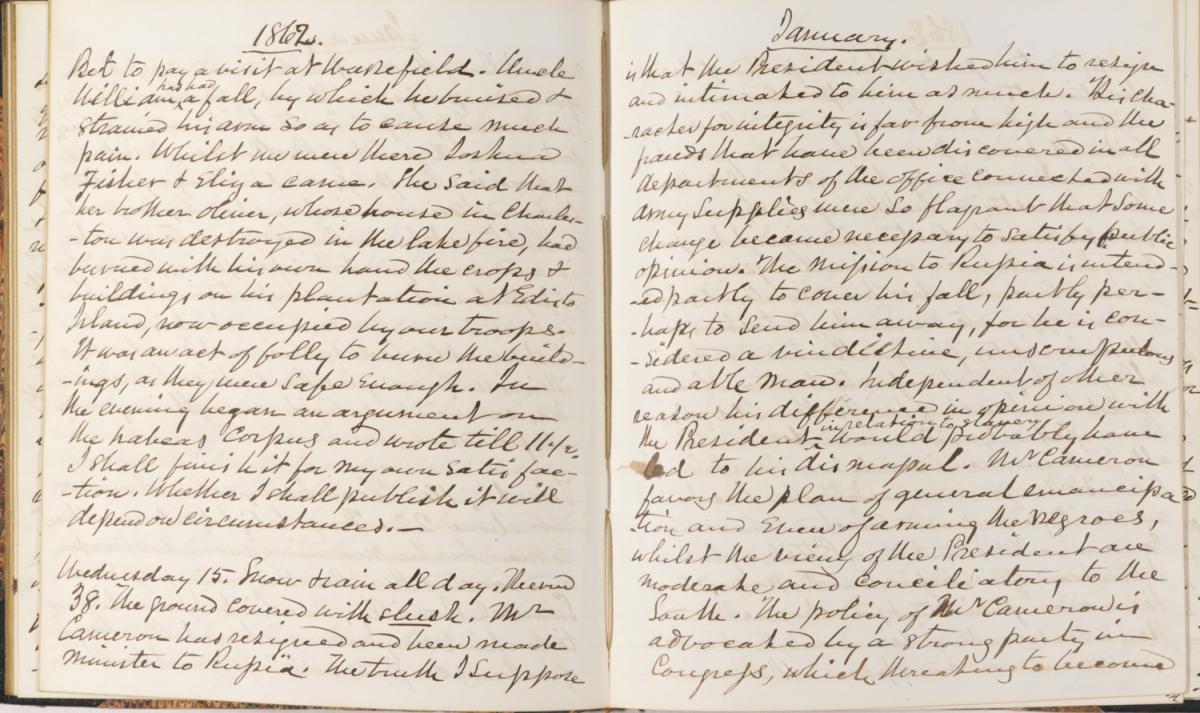 1862.
Bet to pay a visit at Wakefield. Uncle
William has had a fall, by which he bruised &
strained his arm so as to cause much
pain. Whilst we were there Joshua
Fisher & Eliza came. She said that
her brother Oliver, whose house in Charles-
-ton was destroyed in the late fire, had
burned with his own hand the crops &
buildings on his plantation at Edisto
Island, now occupied by our troops.
It was an act of folly to burn the build-
-ings, as they were safe enough. In
the evening began an argument on
the habeas corpus and wrote till 11 1/2.
I shall finish it for my own satisfac-
-tion. Whether I shall publish it will
depend on circumstances.—
Wednesday 15. Snow & rain all day. Therm
38. The ground covered with slush. Mr
Cameron has resigned and been made
minister to Russia. The truth I suppose
January.
is that the President wished him to resign
and intimated to him as much. His cha-
-racter for integrity is far from high and the
frauds that have been discovered in all
departments of the office connected with
army supplies were so flagrant that some
change became necessary to satisfy public
opinion. The mission to Russia is intend-
-ed partly to cover his fall, partly per-
-haps to send him away, for he is con-
-sidered a vindictive, unscrupulous
and able man. Independent of other
reason his difference in opinion with
the President, in relation to slavery would probably have
led to his dismissal. Mr Cameron
favors the plan of general emancipa
-tion and even of arming the negroes,
whilst the views of the President are
moderate and conciliatory to the
South. The policy of Mr Cameron is
advocated by a strong party in
Congress, which threatens to become